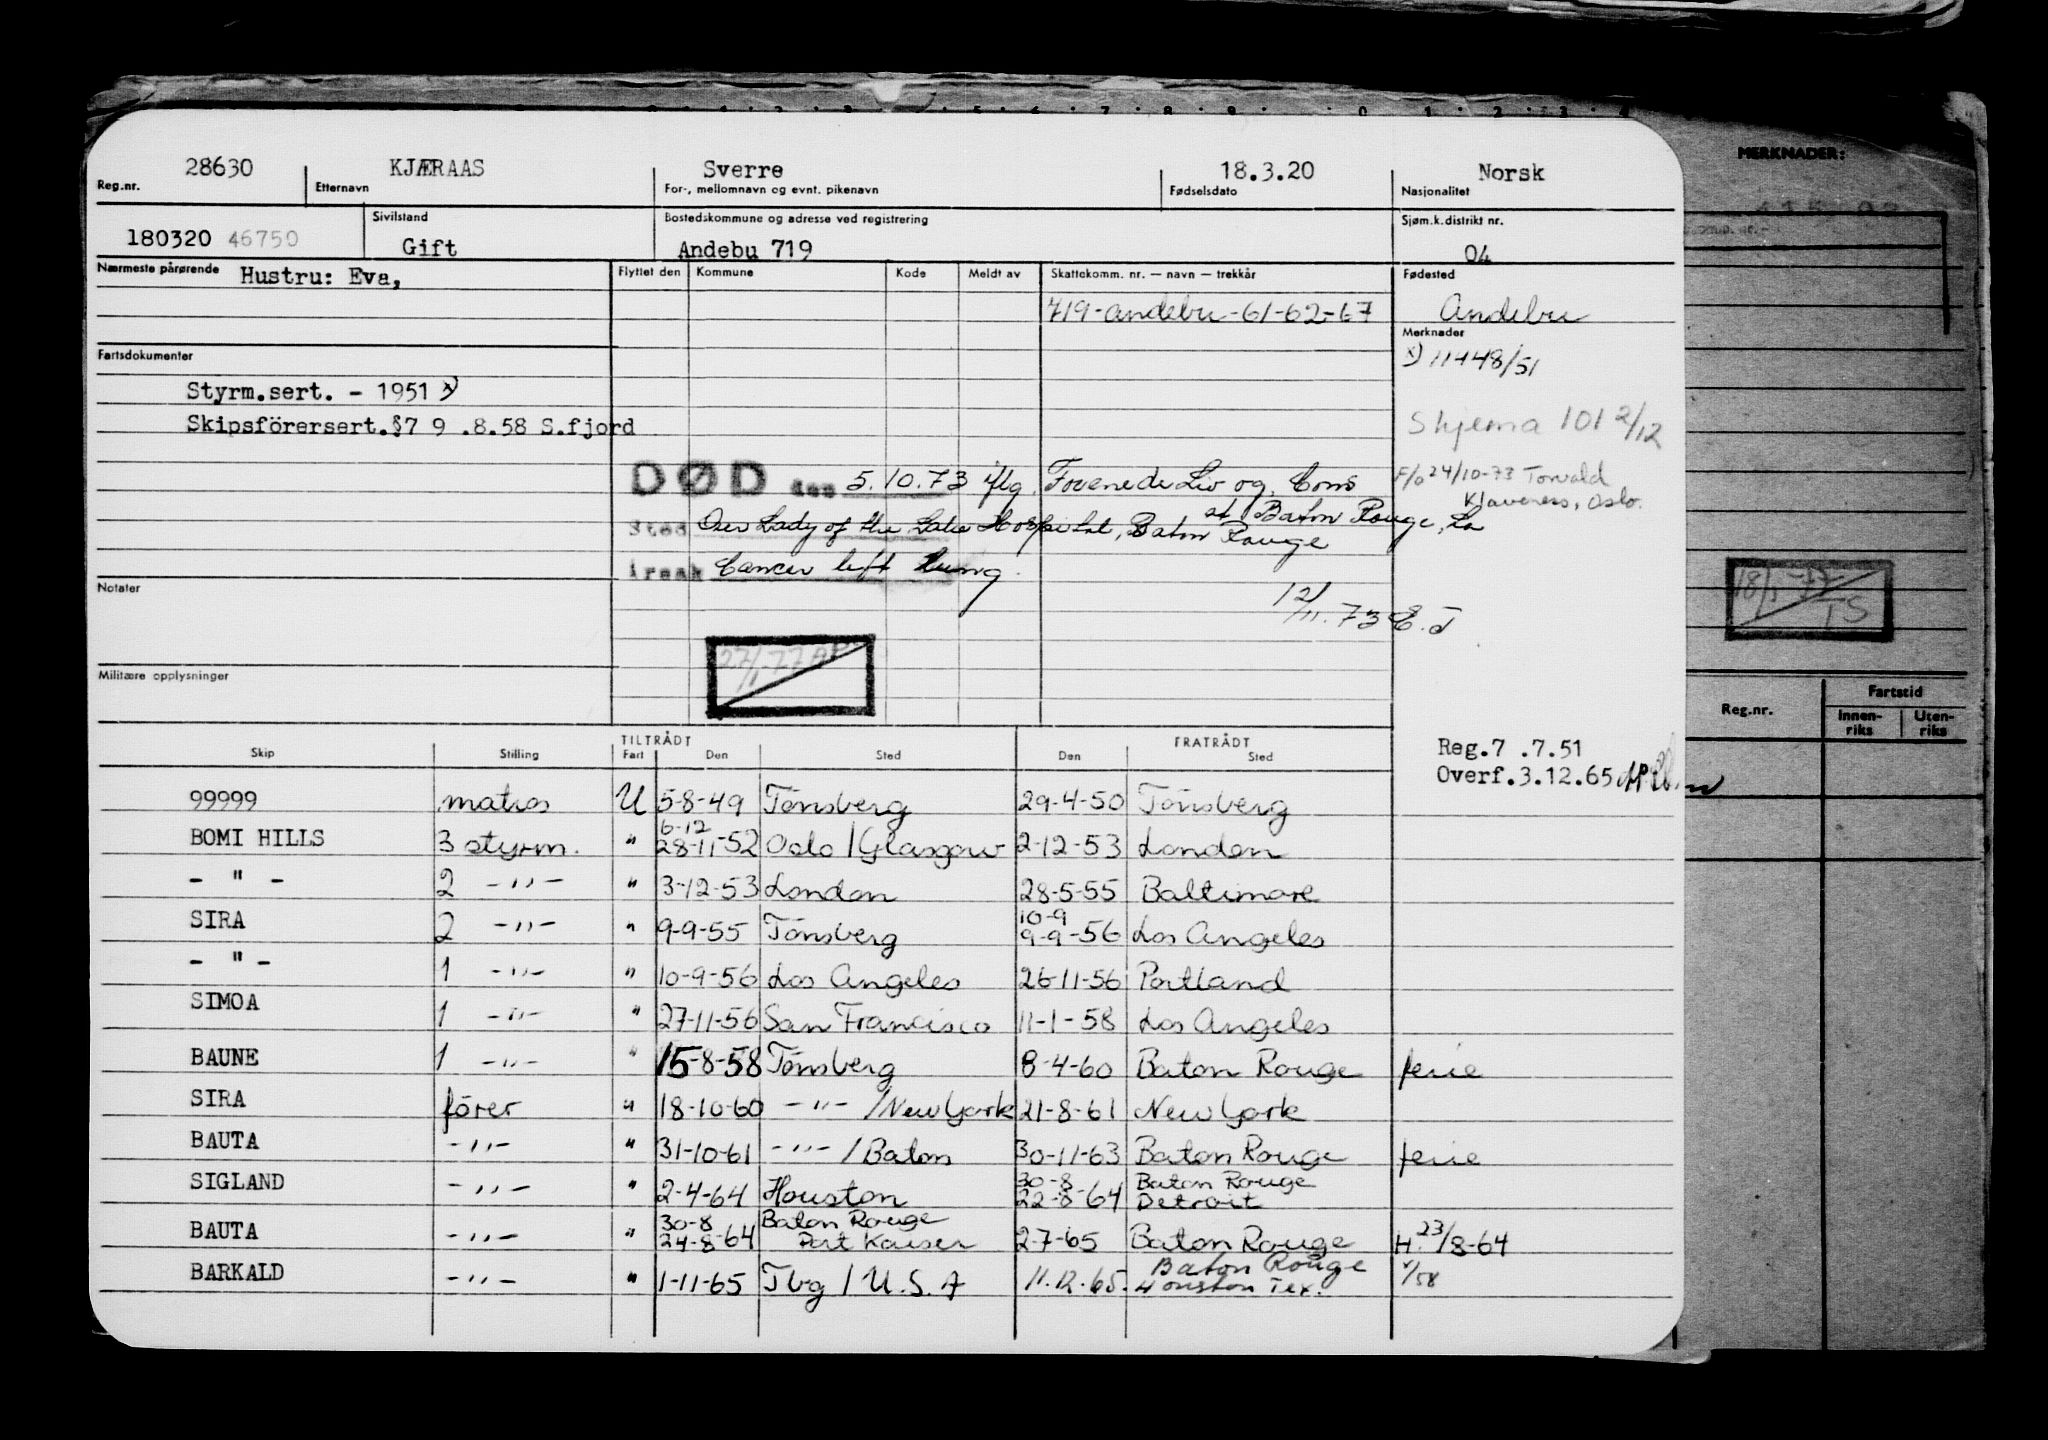 28630 KJÆRAAS Sverre 18.3.20 Norsk
Reg.nr. Etternavn For-, mellomnavn og evnt. pikenavn Fødselsdato Nasjonalitet
Sivilstand Bostedskommune og adresse ved registrering Sjøm.k.distrikt nr.
180320 46750 Gift Andebu 719 04
Nærmeste pårørende Hustru: Eva, Flyttet den Kommune Kode Meldt av Skattekomm. nr. — navn — trekkår Fødested
719-Andebu-61-62-67 Andebu
Merknader
Fartsdokumenter x) 11448/51
Styrm.sert. - 1951 x)
Skipsförersert.§7 9 .8.58 S.fjord Skjema 101 2/12
DØD den 5.10.73 iflg. Forenede Liv og Cons F/o 24/10-73 Torvald
Klaveness, Oslo.
at Baton Rouge, La
Sted Our Lady of the Lake Hospital, Baton Rouge
årsak Cancer left lung.
Notater
12/11.73 E.J
27/1-77
Militære opplysninger
MERKNADER:
18/1-77
TS
Fartstid
Reg.nr. Innen-riks Uten-riks
TILTRÅDT FRATRÅDT
Skip Stilling Fart Den Sted Den Sted
Reg.7 .7.51
Overf.3.12.65
99999 matros U 5-8-49 Tönsberg 29-4-50 Tönsberg
6-12
BOMI HILLS 3 styrm. " 28-11-52 Oslo / Glasgow 2-12-53 London
- " - 2 -"- " 3-12-53 London 28-5-55 Baltimore
10-9
SIRA 2 -"- " 9-9-55 Tönsberg 9-9-56 Los Angeles
- " - 1 -"- " 10-9-56 Los Angeles 26-11-56 Portland
SIMOA 1 -"- " 27-11-56 San Francisco 11-1-58 Los Angeles
BAUNE 1 -"- " 15-8-58 Tönsberg 8-4-60 Baton Rouge ferie
SIRA förer " 18-10-60 -"- / New York 21-8-61 New York
BAUTA -"- " 31-10-61 -"- / Baton 30-11-63 Baton Rouge ferie
30-8 Baton Rouge
SIGLAND -"- " 2-4-64 Houston 22-8-64 Detroit
30-8 Baton Rouge
BAUTA -"- " 24-8-64 Port Kaiser 2-7-65 Baton Rouge H. 23/8-64
Baton Rouge
BARKALD -"- " 1-11-65 Tbg / U.S.A 11.12.65. Houston Tex.